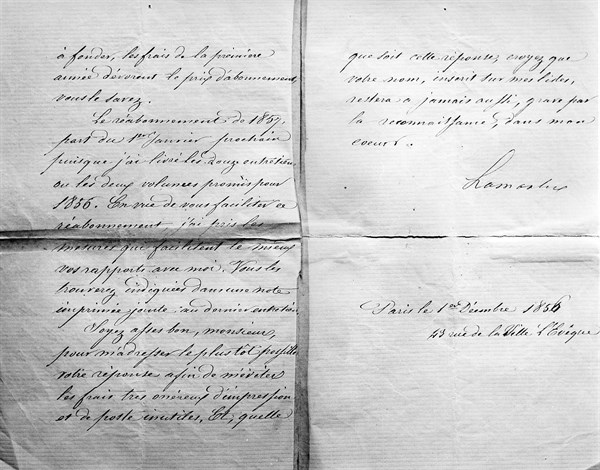 à fonder, les frais de la première
année dévorent le prix d'abonnement,
vous le savez.
Le réabonnement de 1857,
part du 1er Janvier prochain
puisque j'ai livré les douze entretiens
ou les deux volumes promis pour
1856. En vue de vous faciliter ce
réabonnement, j'ai pris les
mesures que facilitent le mieux
vos rapports avec moi. Vous les
trouverez indiquées dans une note
imprimée jointe au dernier entretien.
Soyez assez bon, monsieur,
pour m'adresser le plus tôt possible
votre réponse afin de m'éviter
les frais très onéreux d'impression
et de poste inutiles. Et, quelle
que soit cette réponse, croyez que
votre nom, inscrit sur mes listes,
restera à jamais aussi, gravé par
la reconnaissance, dans mon
coeur.
Lamartine
Paris le 1er Décembre 1856
43 rue de la Ville l'Evêque